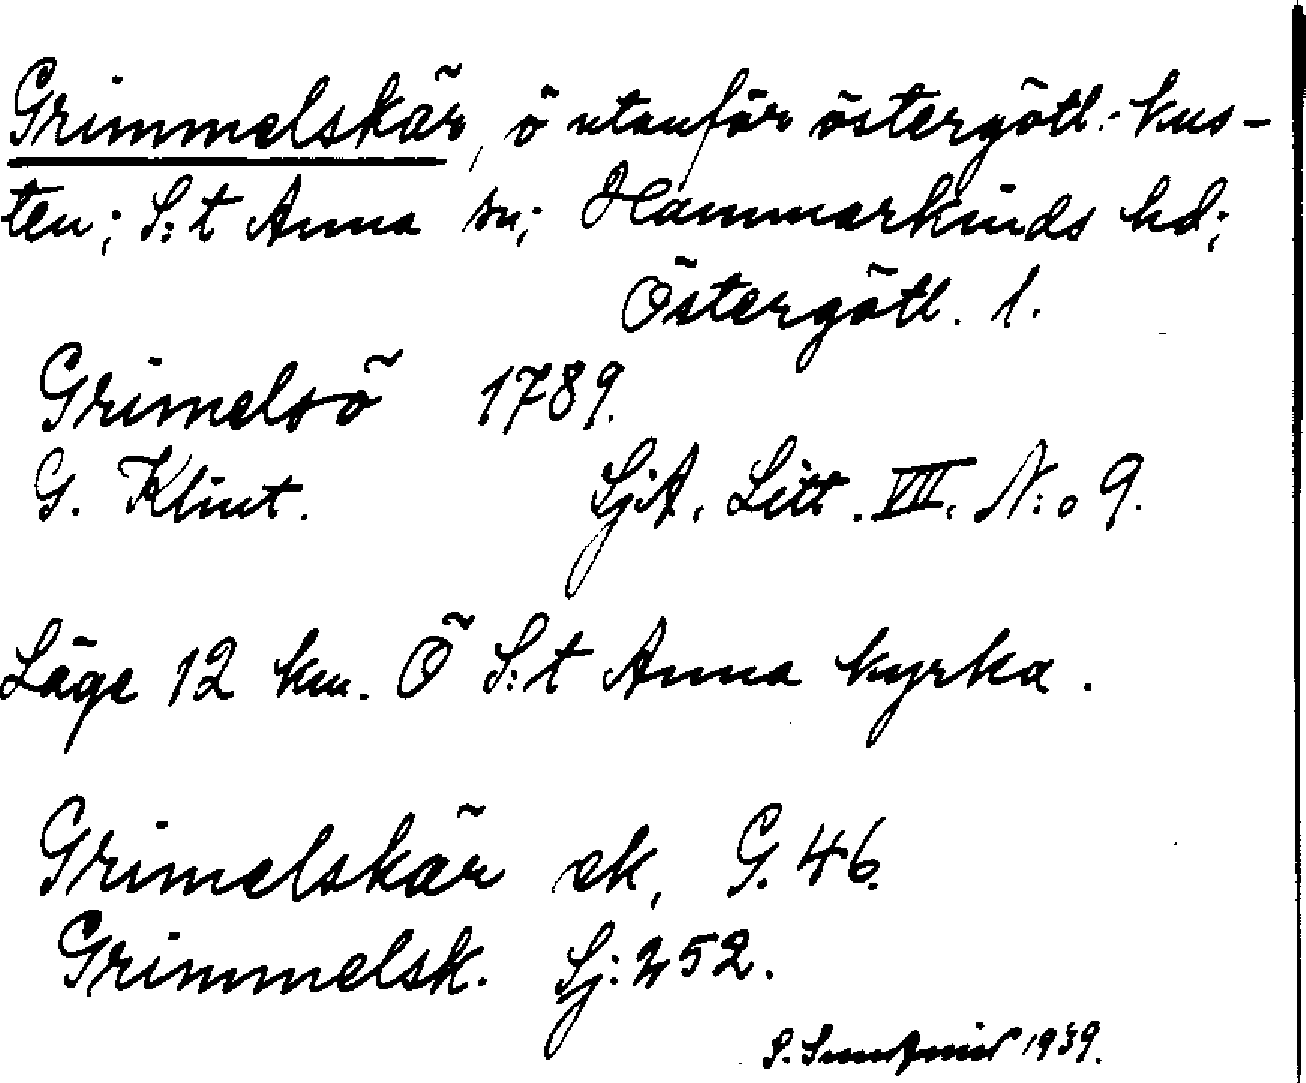 Grimmelskär, ö utanför östergötl. kus-
ten; S:t Anna sn; Hammarkinds hd;
Östergötl. l.
Grimelsö 1789.
G. Klint. SjA. Litt. VIII. N:o 9.
Läge 12 km. Ö S:t Anna kyrka.
Grimelskär ek, G. 46.
Grimmelsk. Sj: 252.
S. 1939.